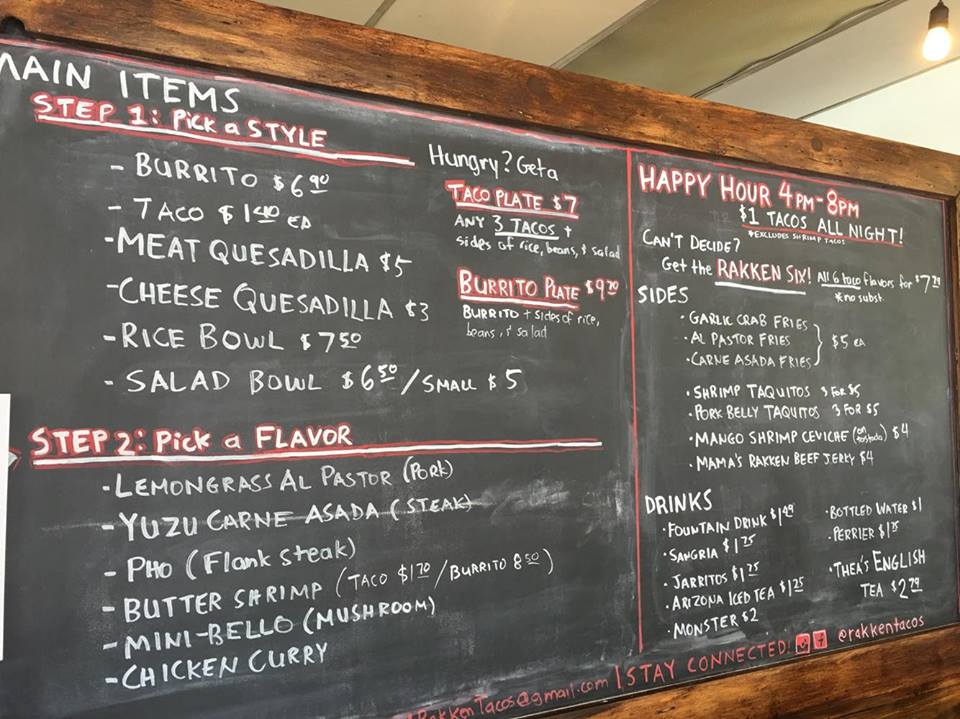 MAIN ITEMS
STEP 1: Pick a STYLE
- BURRITO $6.90
- TACO $1.40 EA
- MEAT QUESADILLA $5
- CHEESE QUESADILLA $3
- RICE BOWL $7.50
- SALAD BOWL $6.50 / SMALL $5
Hungry? Get a
TACO PLATE $7
ANY 3 TACOS +
sides of rice, beans, & salad
BURRITO PLATE $9.20
BURRITO + sides of rice,
beans, & salad
STEP 2: Pick a FLAVOR
- LEMONGRASS AL PASTOR (PORK)
- YUZU CARNE ASADA (STEAK)
- PHO (Flank steak)
- BUTTER SHRIMP (TACO $1.70 / BURRITO 8.50)
- MINI-BELLO (MUSHROOM)
- CHICKEN CURRY
HAPPY HOUR 4PM-8PM
$1 TACOS ALL NIGHT!
*EXCLUDES SHRIMP TACOS
CAN'T DECIDE?
Get the RAKKEN SIX! All 6 taco flavors for $7.29
*no subst.
SIDES
• GARLIC CRAB FRIES
• AL PASTOR FRIES
• CARNE ASADA FRIES
$5 EA
• SHRIMP TAQUITOS 3 FOR $5
• PORK BELLY TAQUITOS 3 FOR $5
• MANGO SHRIMP CEVICHE (on tostada) $4
• MAMA'S RAKKEN BEEF JERKY $4
DRINKS
• FOUNTAIN DRINK $1.49
• SANGRIA $1.75
• JARRITOS $1.75
• ARIZONA ICED TEA $1.25
• MONSTER $2
• BOTTLED WATER $1
• PERRIER $1.75
• THEA'S ENGLISH
TEA $2.29
RakkenTacos@gmail.com | STAY CONNECTED! f @rakkentacos